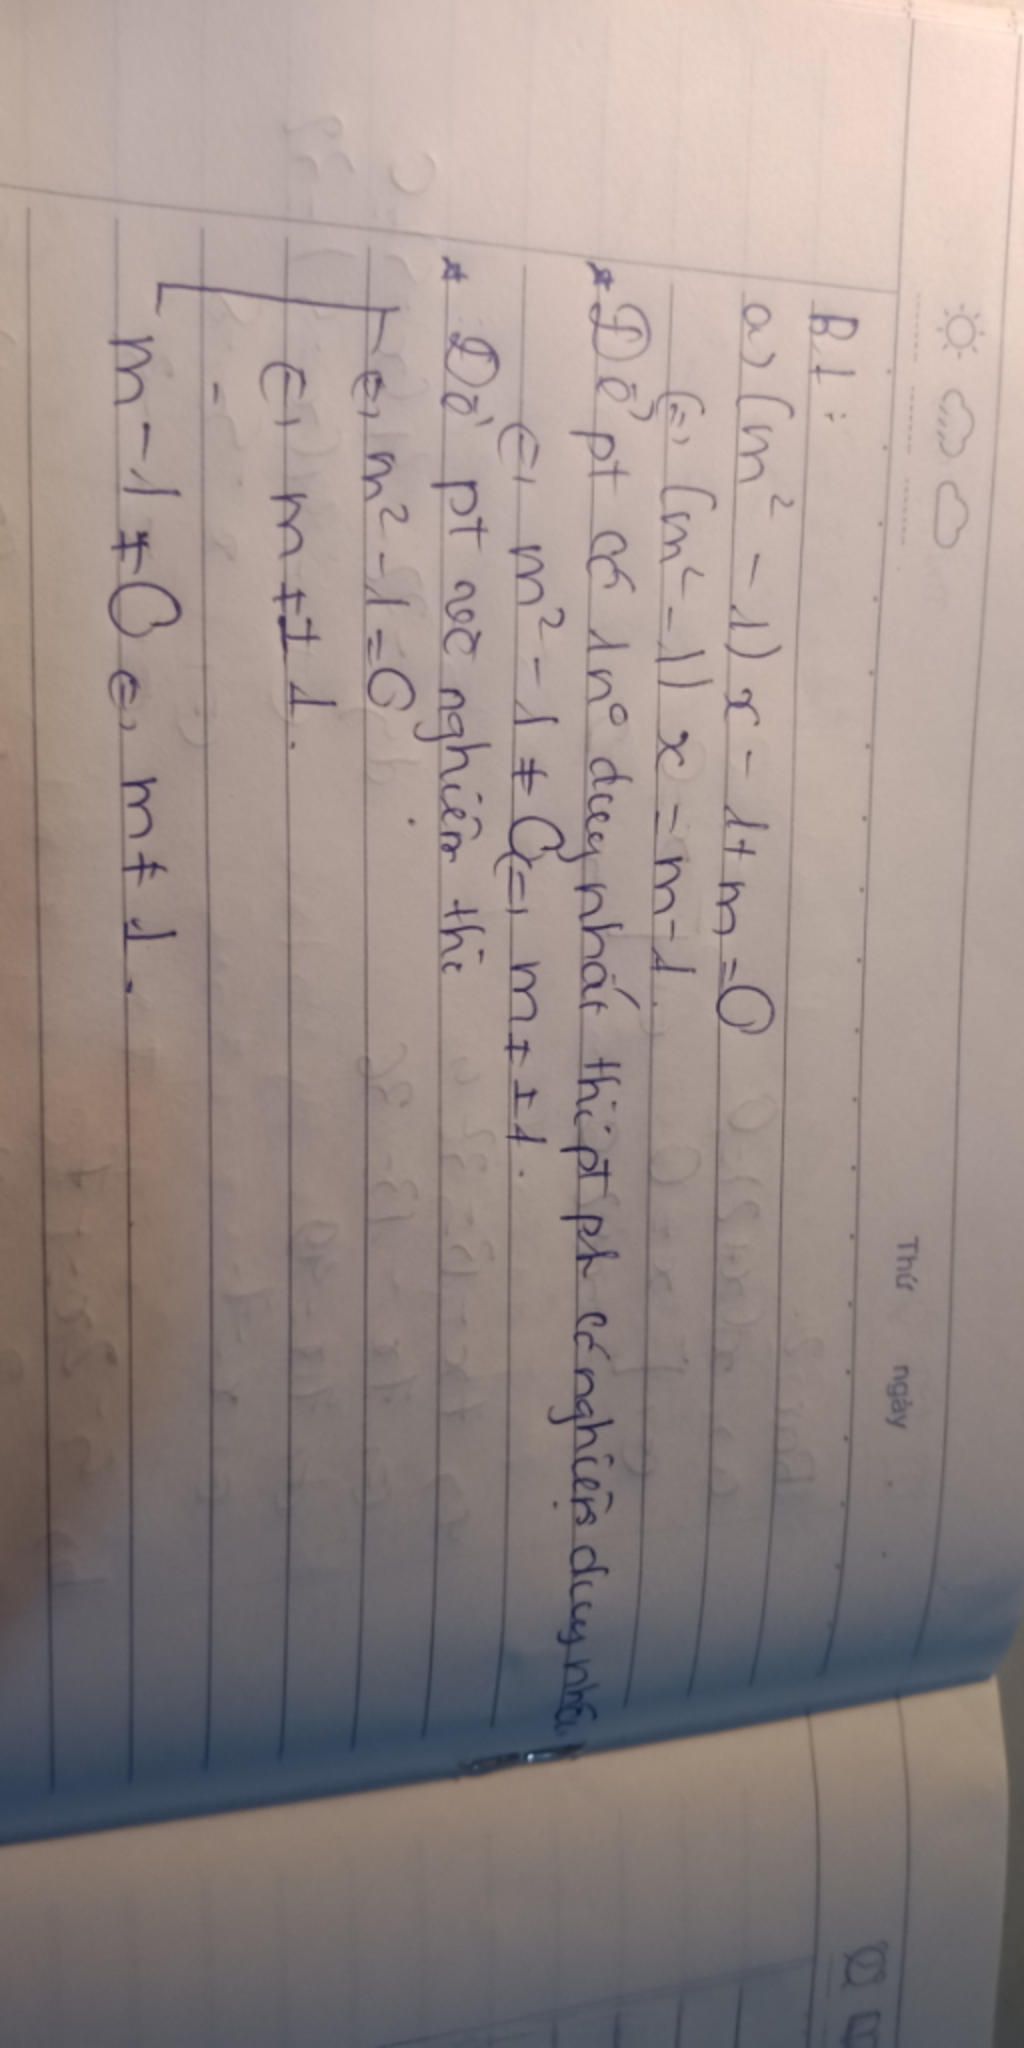 Thứ ngày
B1:
a, (m² - 1) x - 1 + m = 0
(=, (m² - 1) x = m - 1.
* Để pt có 1n° duy nhất thì pt pt có nghiệm duy nhấ
(=, m² - 1 ≠ 0 (=, m ≠ ± 1.
* Để pt vô nghiệm thì
(=, m² - 1 = 0
(=, m ≠ ± 1.
m - 1 ≠ 0 (=, m ≠ 1.